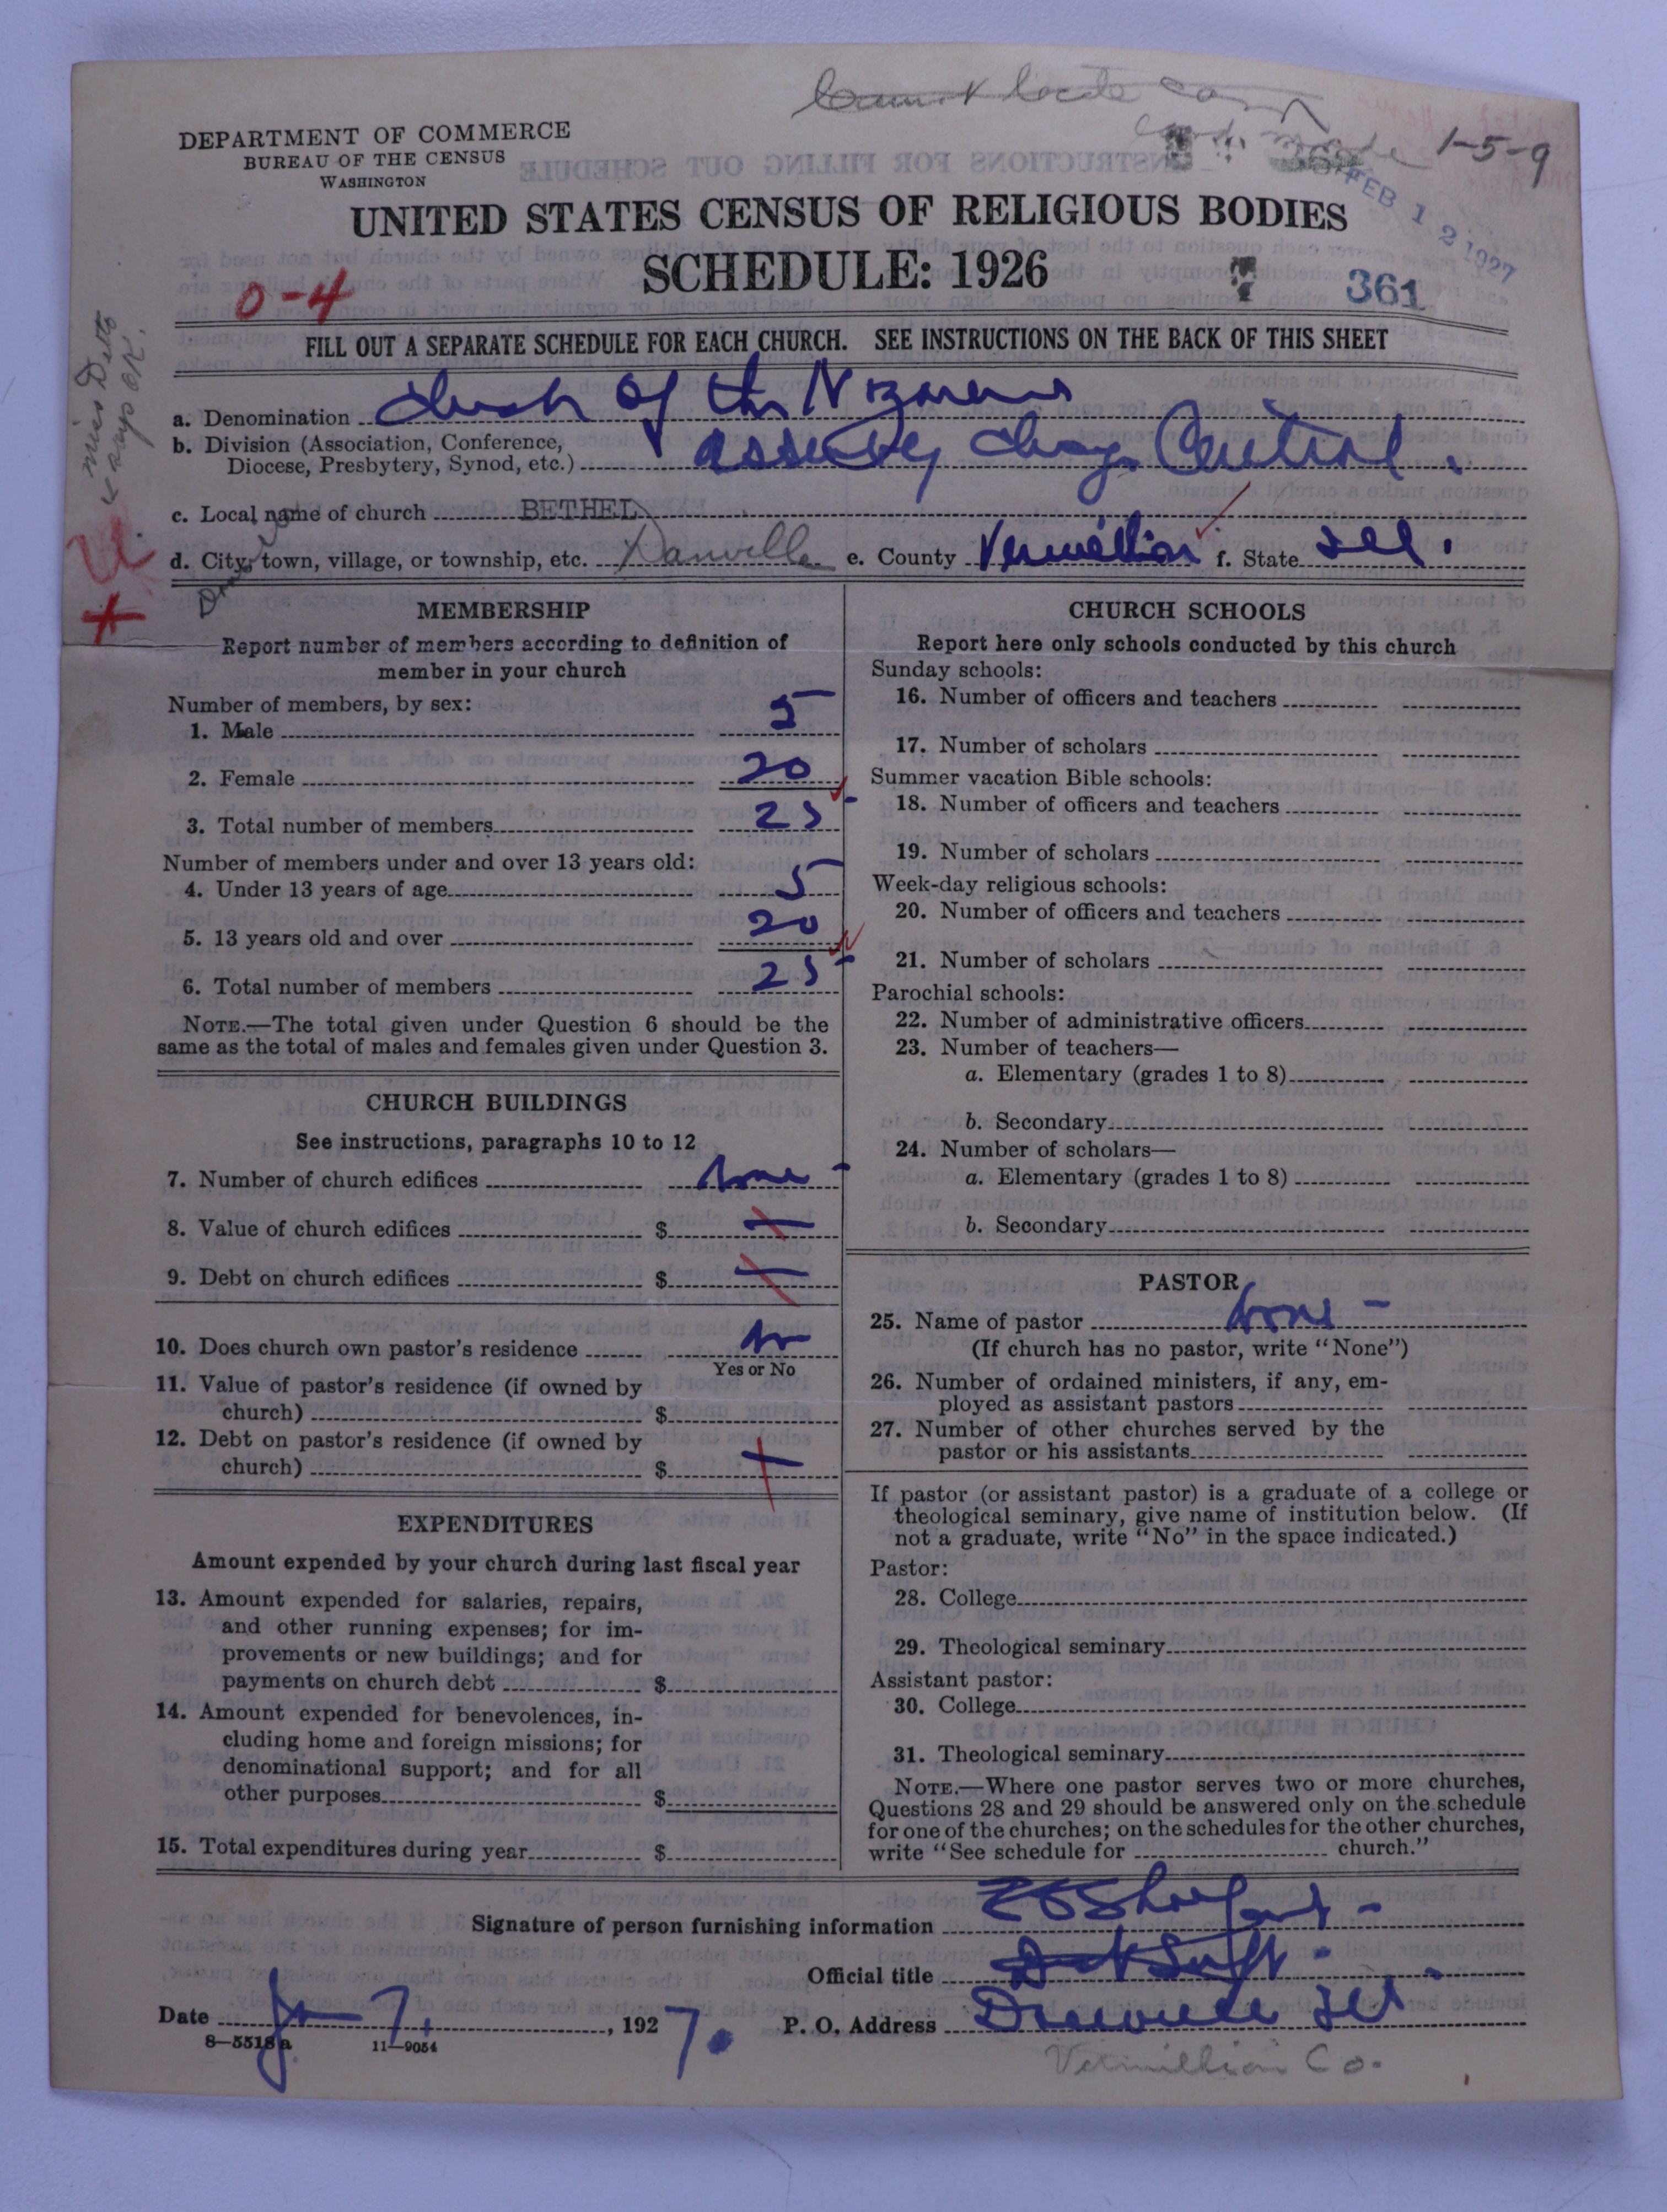 1-5-9
DEPARTMENT OF COMMERCE
BUREAU OF THE CENSUS
WASHINGTON
FEB 12 1927
UNITED STATES CENSUS OF RELIGIOUS BODIES
SCHEDULE: 1926
0-4
361
FILL OUT A SEPARATE SCHEDULE FOR EACH CHURCH. SEE INSTRUCTIONS ON THE BACK OF THIS SHEET
a. Denomination Church of the Nazarene
b. Division (Association, Conference,
Diocese, Presbytery, Synod, etc.) Chicago Central.
c. Local name of church BETHEL
d. City, town, village, or township, etc. Danville e. County Vermillion f. State Ill.
MEMBERSHIP
Report number of members according to definition of
member in your church
Number of members, by sex:
1. Male 5
2. Female 20
3. Total number of members 25
Number of members under and over 13 years old:
4. Under 13 years of age 5
5. 13 years old and over 20
6. Total number of members 25
NOTE.—The total given under Question 6 should be the
same as the total of males and females given under Question 3.
CHURCH BUILDINGS
See instructions, paragraphs 10 to 12
7. Number of church edifices None
8. Value of church edifices $ —
9. Debt on church edifices $ —
10. Does church own pastor's residence No
Yes or No
11. Value of pastor's residence (if owned by
church) $
12. Debt on pastor's residence (if owned by
church) $ —
EXPENDITURES
Amount expended by your church during last fiscal year
13. Amount expended for salaries, repairs,
and other running expenses; for im-
provements or new buildings; and for
payments on church debt $
14. Amount expended for benevolences, in-
cluding home and foreign missions; for
denominational support; and for all
other purposes $
15. Total expenditures during year $
CHURCH SCHOOLS
Report here only schools conducted by this church
Sunday schools:
16. Number of officers and teachers
17. Number of scholars
Summer vacation Bible schools:
18. Number of officers and teachers
19. Number of scholars
Week-day religious schools:
20. Number of officers and teachers
21. Number of scholars
Parochial schools:
22. Number of administrative officers
23. Number of teachers—
a. Elementary (grades 1 to 8)
b. Secondary
24. Number of scholars—
a. Elementary (grades 1 to 8)
b. Secondary
PASTOR
25. Name of pastor None -
(If church has no pastor, write "None")
26. Number of ordained ministers, if any, em-
ployed as assistant pastors
27. Number of other churches served by the
pastor or his assistants
If pastor (or assistant pastor) is a graduate of a college or
theological seminary, give name of institution below. (If
not a graduate, write "No" in the space indicated.)
Pastor:
28. College
29. Theological seminary
Assistant pastor:
30. College
31. Theological seminary
NOTE.—Where one pastor serves two or more churches,
Questions 28 and 29 should be answered only on the schedule
for one of the churches; on the schedules for the other churches,
write "See schedule for church."
Signature of person furnishing information
Official title Dist Supt.
Date Jan 7, 1927. P. O. Address Danville Ill
8—5518a 11—9054
Vermillion Co.